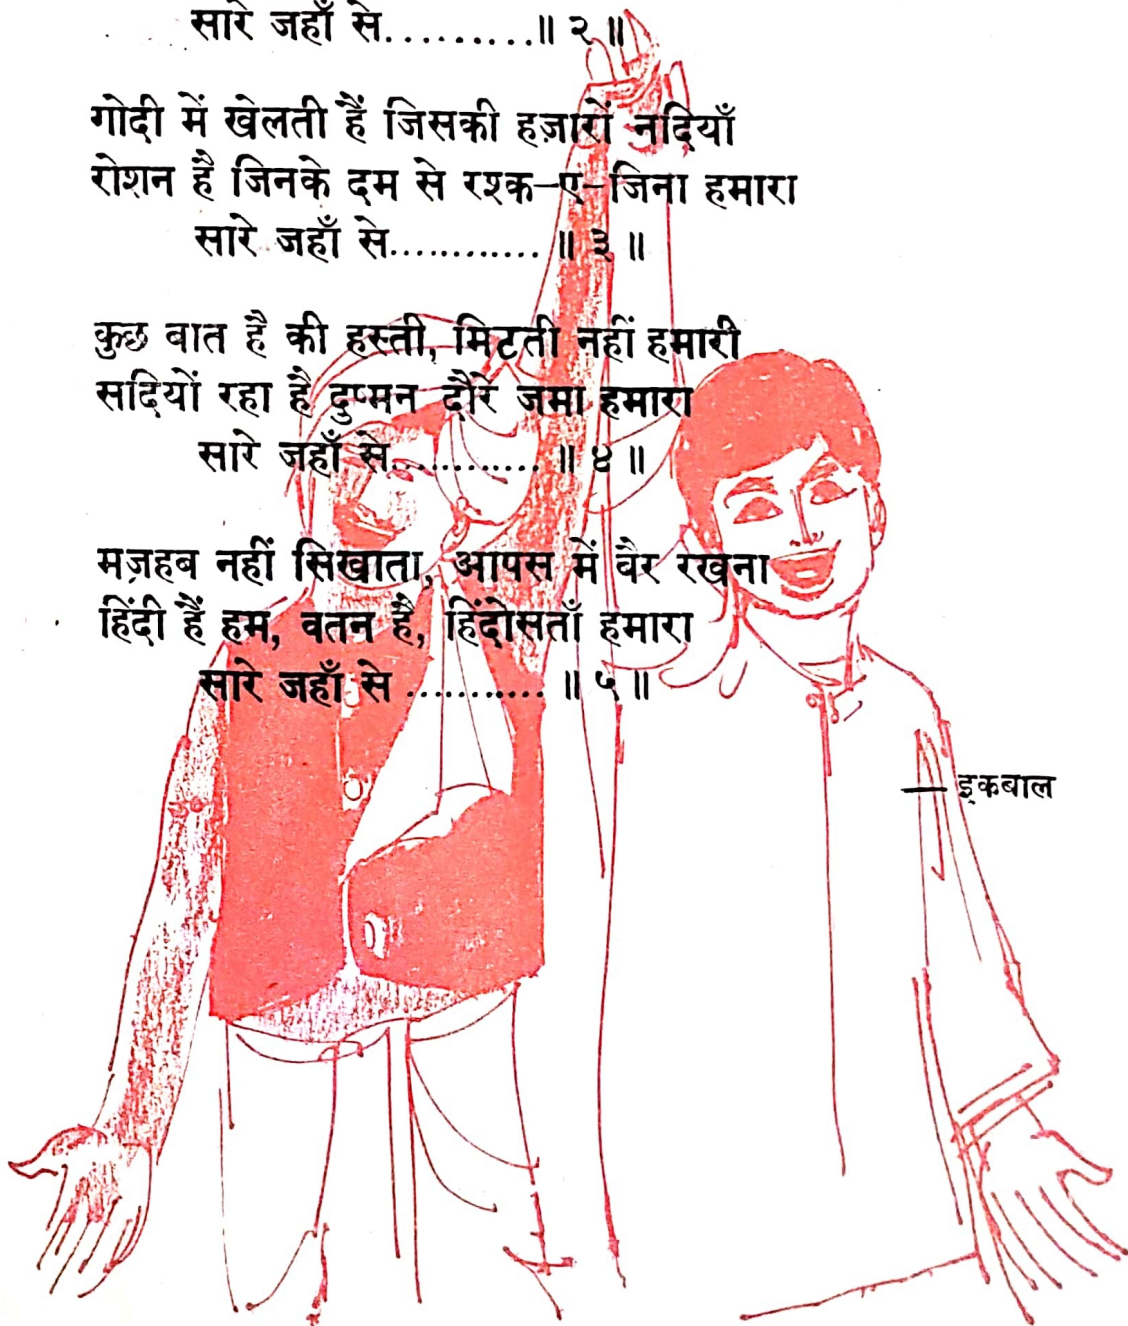 सारे जहाँ से..........॥ २ ॥
गोदी में खेलती हैं जिसकी हज़ारों नदियाँ
रोशन है जिनके दम से रश्क-ए-जिना हमारा
सारे जहाँ से............ ॥ ३ ॥
कुछ बात है की हस्ती, मिटती नहीं हमारी
सदियों रहा है दुष्मन दौरे जमा हमारा
सारे जहाँ से............ ॥ ४ ॥
मज़हब नहीं सिखाता, आपस में बैर रखना
हिंदी हैं हम, वतन है, हिंदोसताँ हमारा
सारे जहाँ से ........... ॥ ५ ॥
— इकबाल